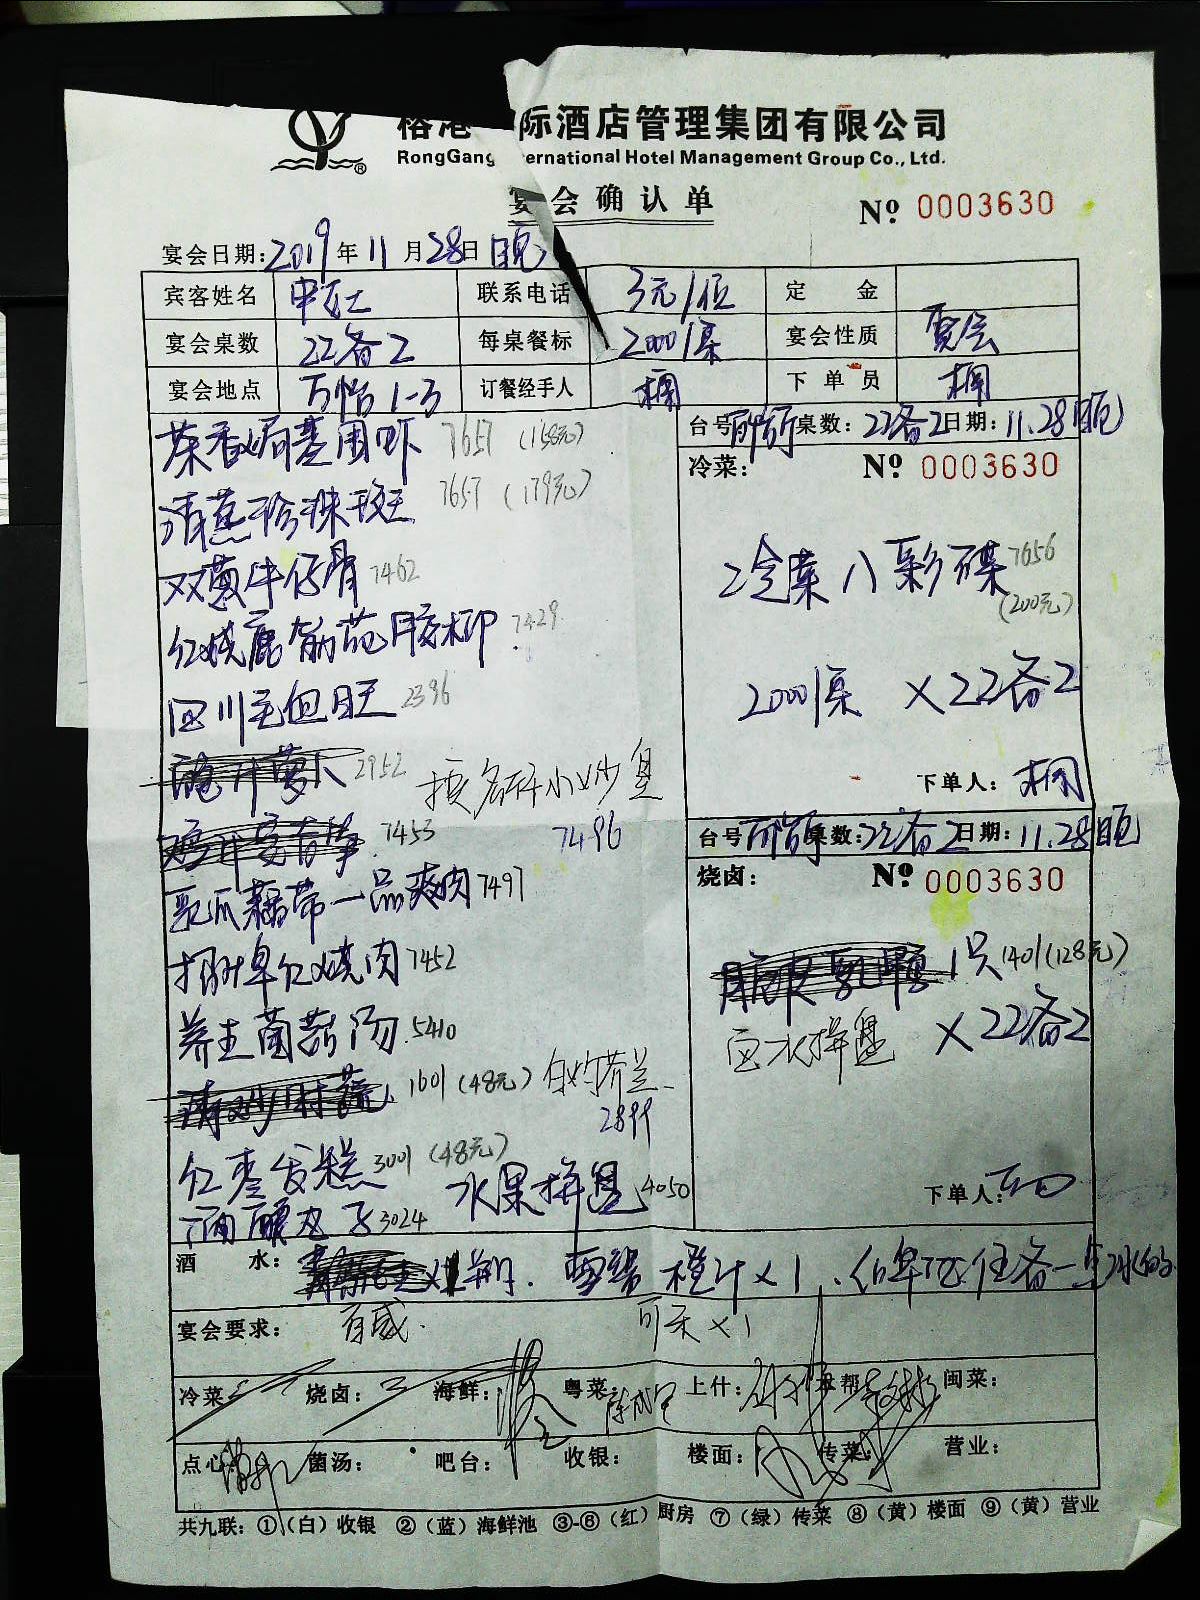 榕港 际酒店管理集团有限公司
RongGang ernational Hotel Management Group Co., Ltd.
宴会确认单
№ 0003630
宴会日期: 2019年11月28日 晚
宾客姓名 联系电话 3元/位 定金
宴会桌数 22备2 每桌餐标 2000/桌 宴会性质 宴会
宴会地点 万怡1-3 订餐经手人 桐 下单员 桐
茶香焗基围虾 7657 (158元)
清蒸珍珠斑 7657 (179元)
双葱牛仔骨 7462
红烧鹿筋花胶柳 7429
四川毛血旺 2396
2952 换 小炒皇
7453 7496
藕带一品爽肉 7497
红烧肉 7452
养生菌菇汤 5410
清炒时蔬 1601 (48元) 白灼芥兰 2899
红枣发糕 3001 (48元)
酒酿丸子 3024 水果拼盘 4050
台号: 桌数: 22备2 日期: 11.28晚
冷菜: № 0003630
冷菜八彩碟 7656
(200元)
2000/桌 ×22备2
下单人: 桐
台号: 桌数: 22备2 日期: 11.28晚
烧卤: № 0003630
1只 1401 (128元)
卤水拼盘 ×22备2
下单人:
酒水: 雪碧 橙汁×1
宴会要求: 百威 可乐×1
冷菜: 烧卤: 海鲜: 粤菜: 上什: 闽菜:
点心: 菌汤: 吧台: 收银: 楼面: 传菜: 营业:
共九联: ①(白)收银 ②(蓝)海鲜池 ③-⑥(红)厨房 ⑦(绿)传菜 ⑧(黄)楼面 ⑨(黄)营业